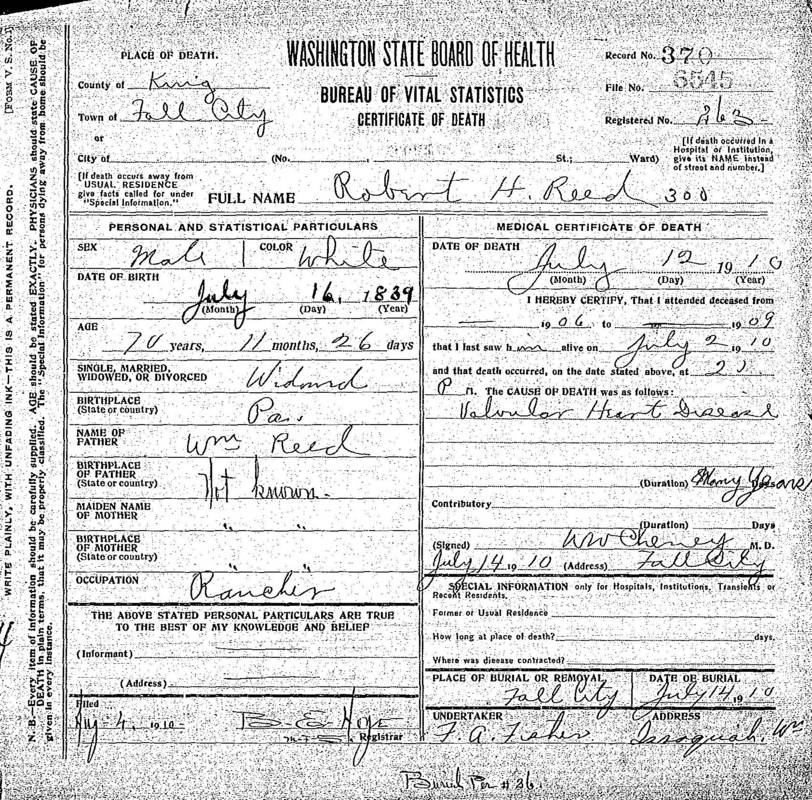 WASHINGTON STATE BOARD OF HEALTH
BUREAU OF VITAL STATISTICS
CERTIFICATE OF DEATH
PLACE OF DEATH.
County of King
Town of Fall City
or
City of (No. , St.; Ward)
Record No. 370
File No. 6545
Registered No. 263
[If death occurred in a
Hospital or Institution,
give its NAME instead
of street and number.]
[If death occurs away from
USUAL RESIDENCE
give facts called for under
"Special Information."
FULL NAME Robert H. Reed 300
PERSONAL AND STATISTICAL PARTICULARS
SEX Male COLOR White
DATE OF BIRTH
July 16, 1839
(Month) (Day) (Year)
AGE
70 years, 11 months, 26 days
SINGLE, MARRIED,
WIDOWED, OR DIVORCED Widowd
BIRTHPLACE
(State or country) Pa.
NAME OF
FATHER Wm Reed
BIRTHPLACE
OF FATHER
(State or country) Not known.
MAIDEN NAME
OF MOTHER " "
BIRTHPLACE
OF MOTHER
(State or country) " "
OCCUPATION Rancher
THE ABOVE STATED PERSONAL PARTICULARS ARE TRUE
TO THE BEST OF MY KNOWLEDGE AND BELIEF
(Informant)
(Address)
Filed
Aug-4. 1910 B. E. Registrar
MEDICAL CERTIFICATE OF DEATH
DATE OF DEATH
July 12 1910
(Month) (Day) (Year)
I HEREBY CERTIFY, That I attended deceased from
— 1906 to — 1909
that I last saw him alive on July 2 1910
and that death occurred, on the date stated above, at 2
P M. The CAUSE OF DEATH was as follows:
Valvular Heart Disease
(Duration) Many Years
Contributory
(Duration) Days
(Signed) WW Cheney M. D.
July 14 1910 (Address) Fall City
SPECIAL INFORMATION only for Hospitals, Institutions, Transients or
Recent Residents.
Former or Usual Residence
How long at place of death? days.
Where was disease contracted?
PLACE OF BURIAL OR REMOVAL DATE OF BURIAL
Fall City July 14, 1910
UNDERTAKER ADDRESS
F. A. Fisher Issaquah, Wn
Burial Per # 36.
[FORM V. S. No. 1]
WRITE PLAINLY, WITH UNFADING INK—THIS IS A PERMANENT RECORD.
N. B.—Every item of information should be carefully supplied. AGE should be stated EXACTLY. PHYSICIANS should state CAUSE OF
DEATH in plain terms, that it may be properly classified. The "Special Information" for persons dying away from home should be
given in every instance.